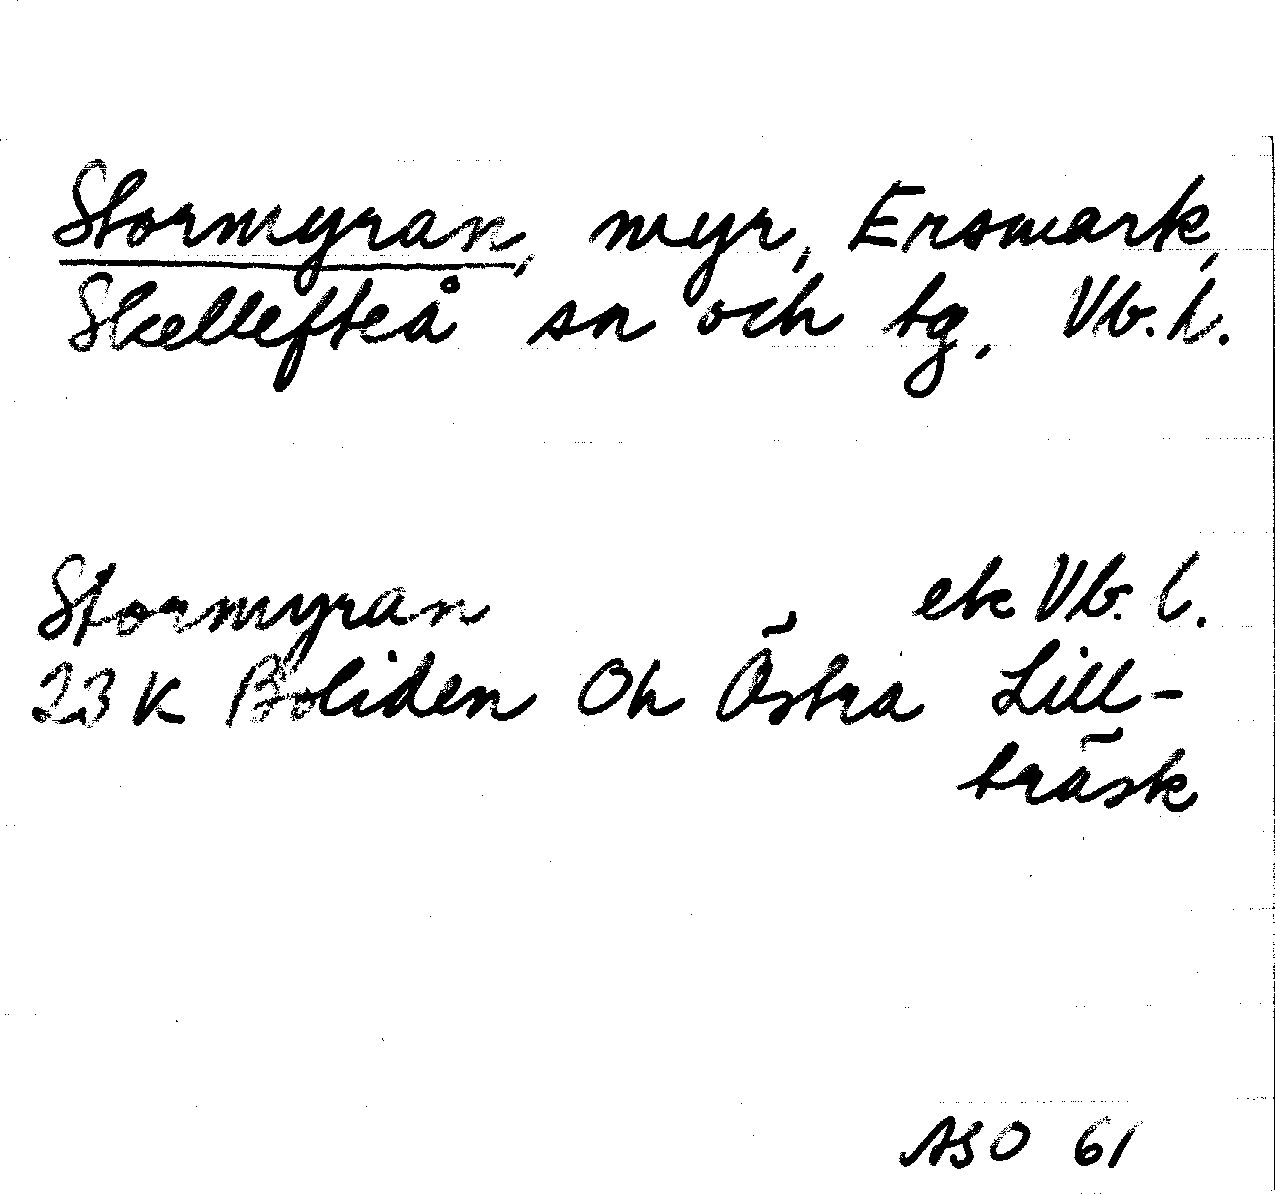 Stormyran, myr, Ersmark,
Skellefteå sn och tg, Vb. l.
Stormyran ek Vb. l.
23 K Boliden Oh Östra Lill-
träsk
ASO 61